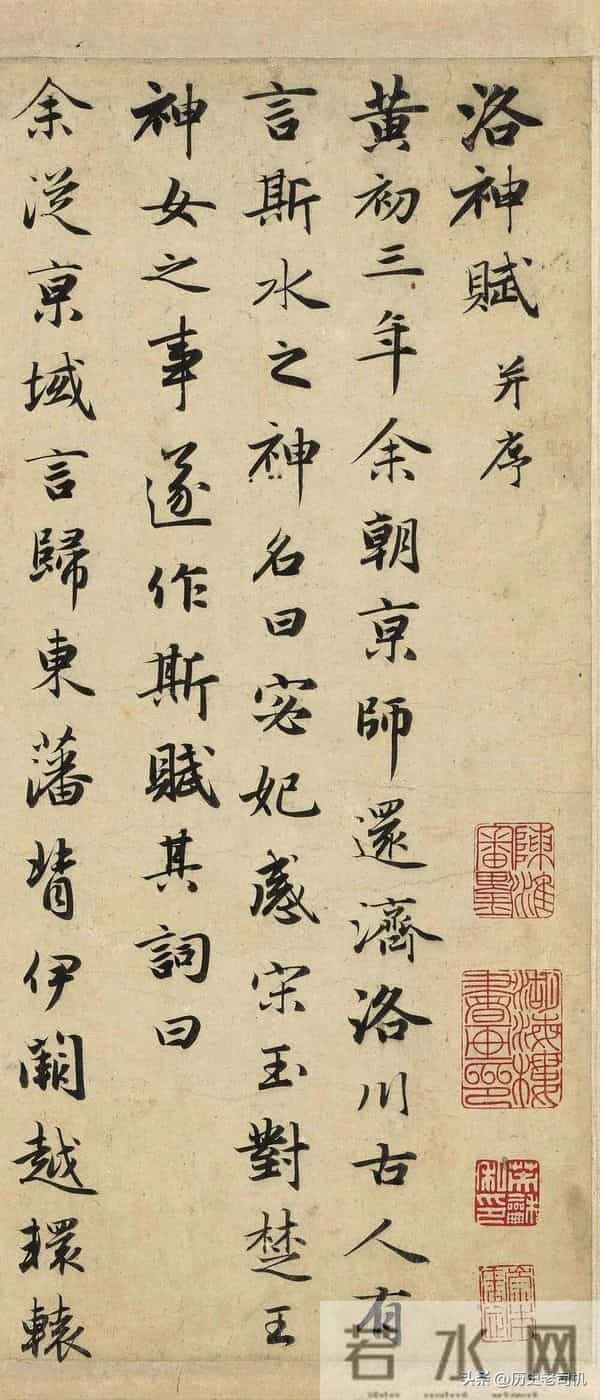 洛神賦 并序
黄初三年余朝亰師還濟洛川古人有
言斯水之神名曰宓妃感宋玉對楚王
神女之事遂作斯賦其詞曰
余従亰域言歸東藩背伊闕越轘轅
若水网
头条 @历史老司机